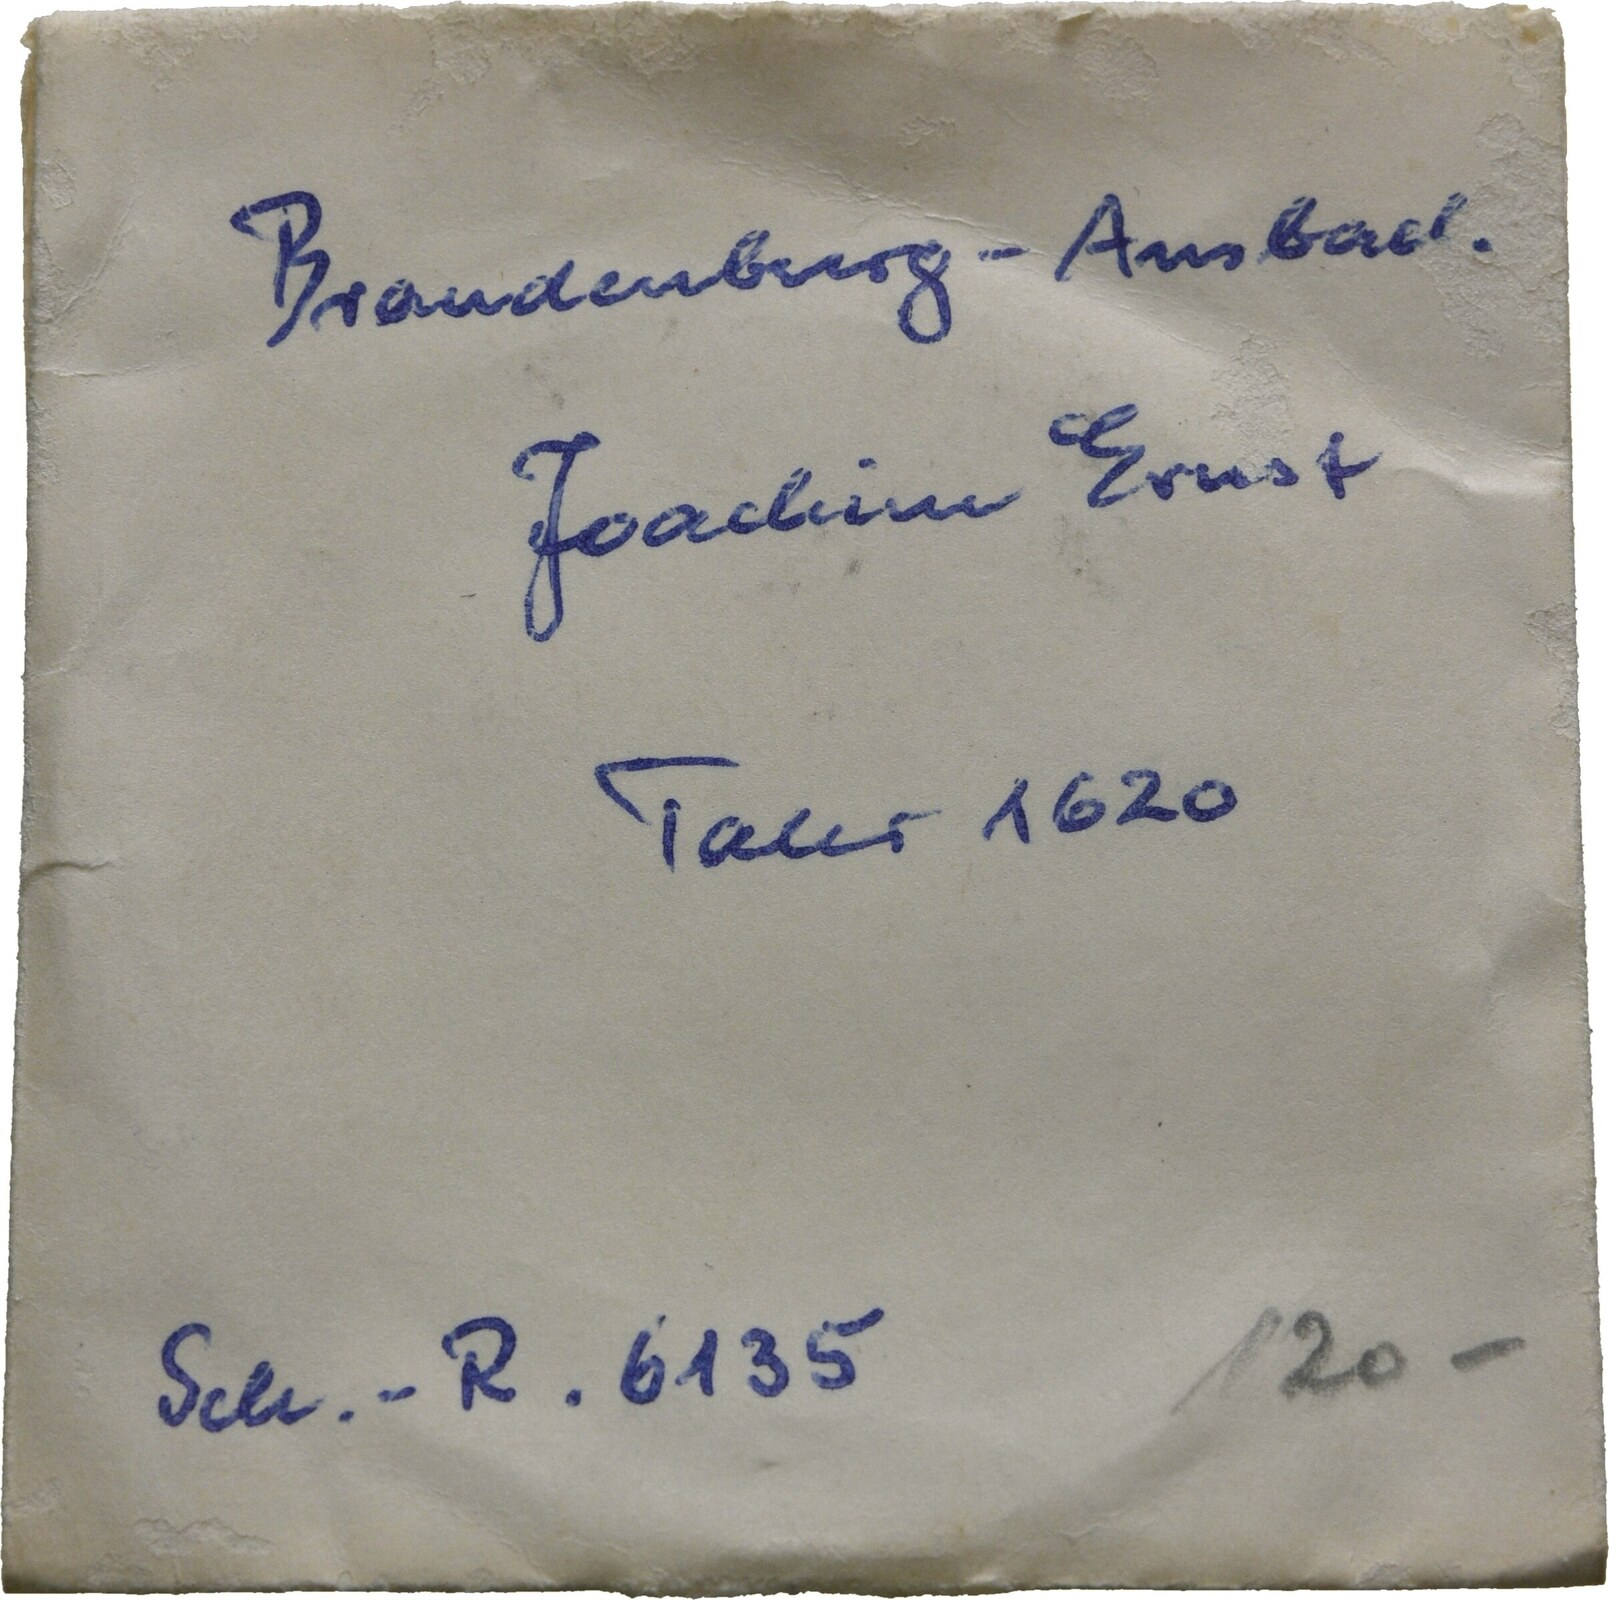 Brandenburg-Ansbach.
Joachim Ernst
Taler 1620
Sch.-R. 6135
120-